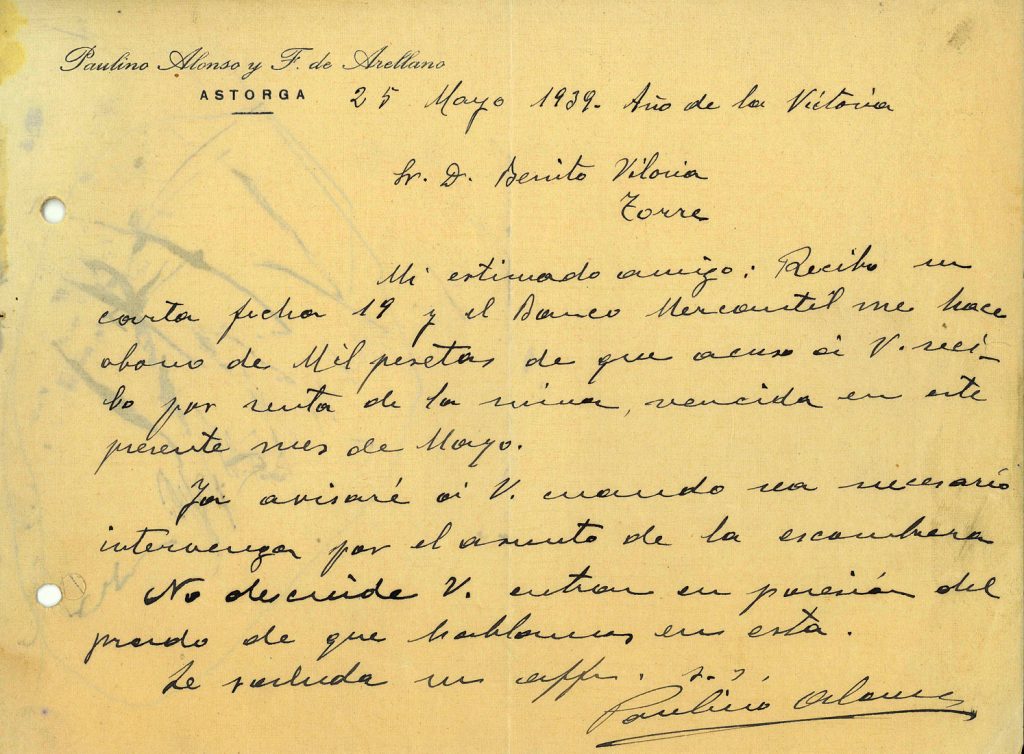 Paulino Alonso y F. de Arellano
ASTORGA 25 Mayo 1939. Año de la Victoria
Sr. D. Benito Viloria
Torre
Mi estimado amigo: Recibo su
carta fecha 19 y el Banco Mercantil me hace
abono de Mil pesetas de que acuso a V. reci-
bo por renta de la mina, vencida en este
presente mes de Mayo.
Ya avisaré a V. cuando sea necesario
intervenga por el asunto de la escombrera
No descuide V. entrar en posesión del
prado de que hablamos en esta.
Le saluda su affm. s. s.
Paulino Alonso